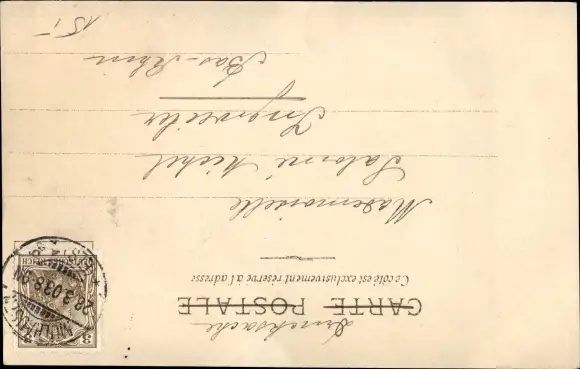 Drucksache
CARTE POSTALE
Ce côté est exclusivement réservé à l'adresse
Mademoiselle
Salomé Michel
Ingweiler
Bas-Rhin
15,-
3
28.3.03.8